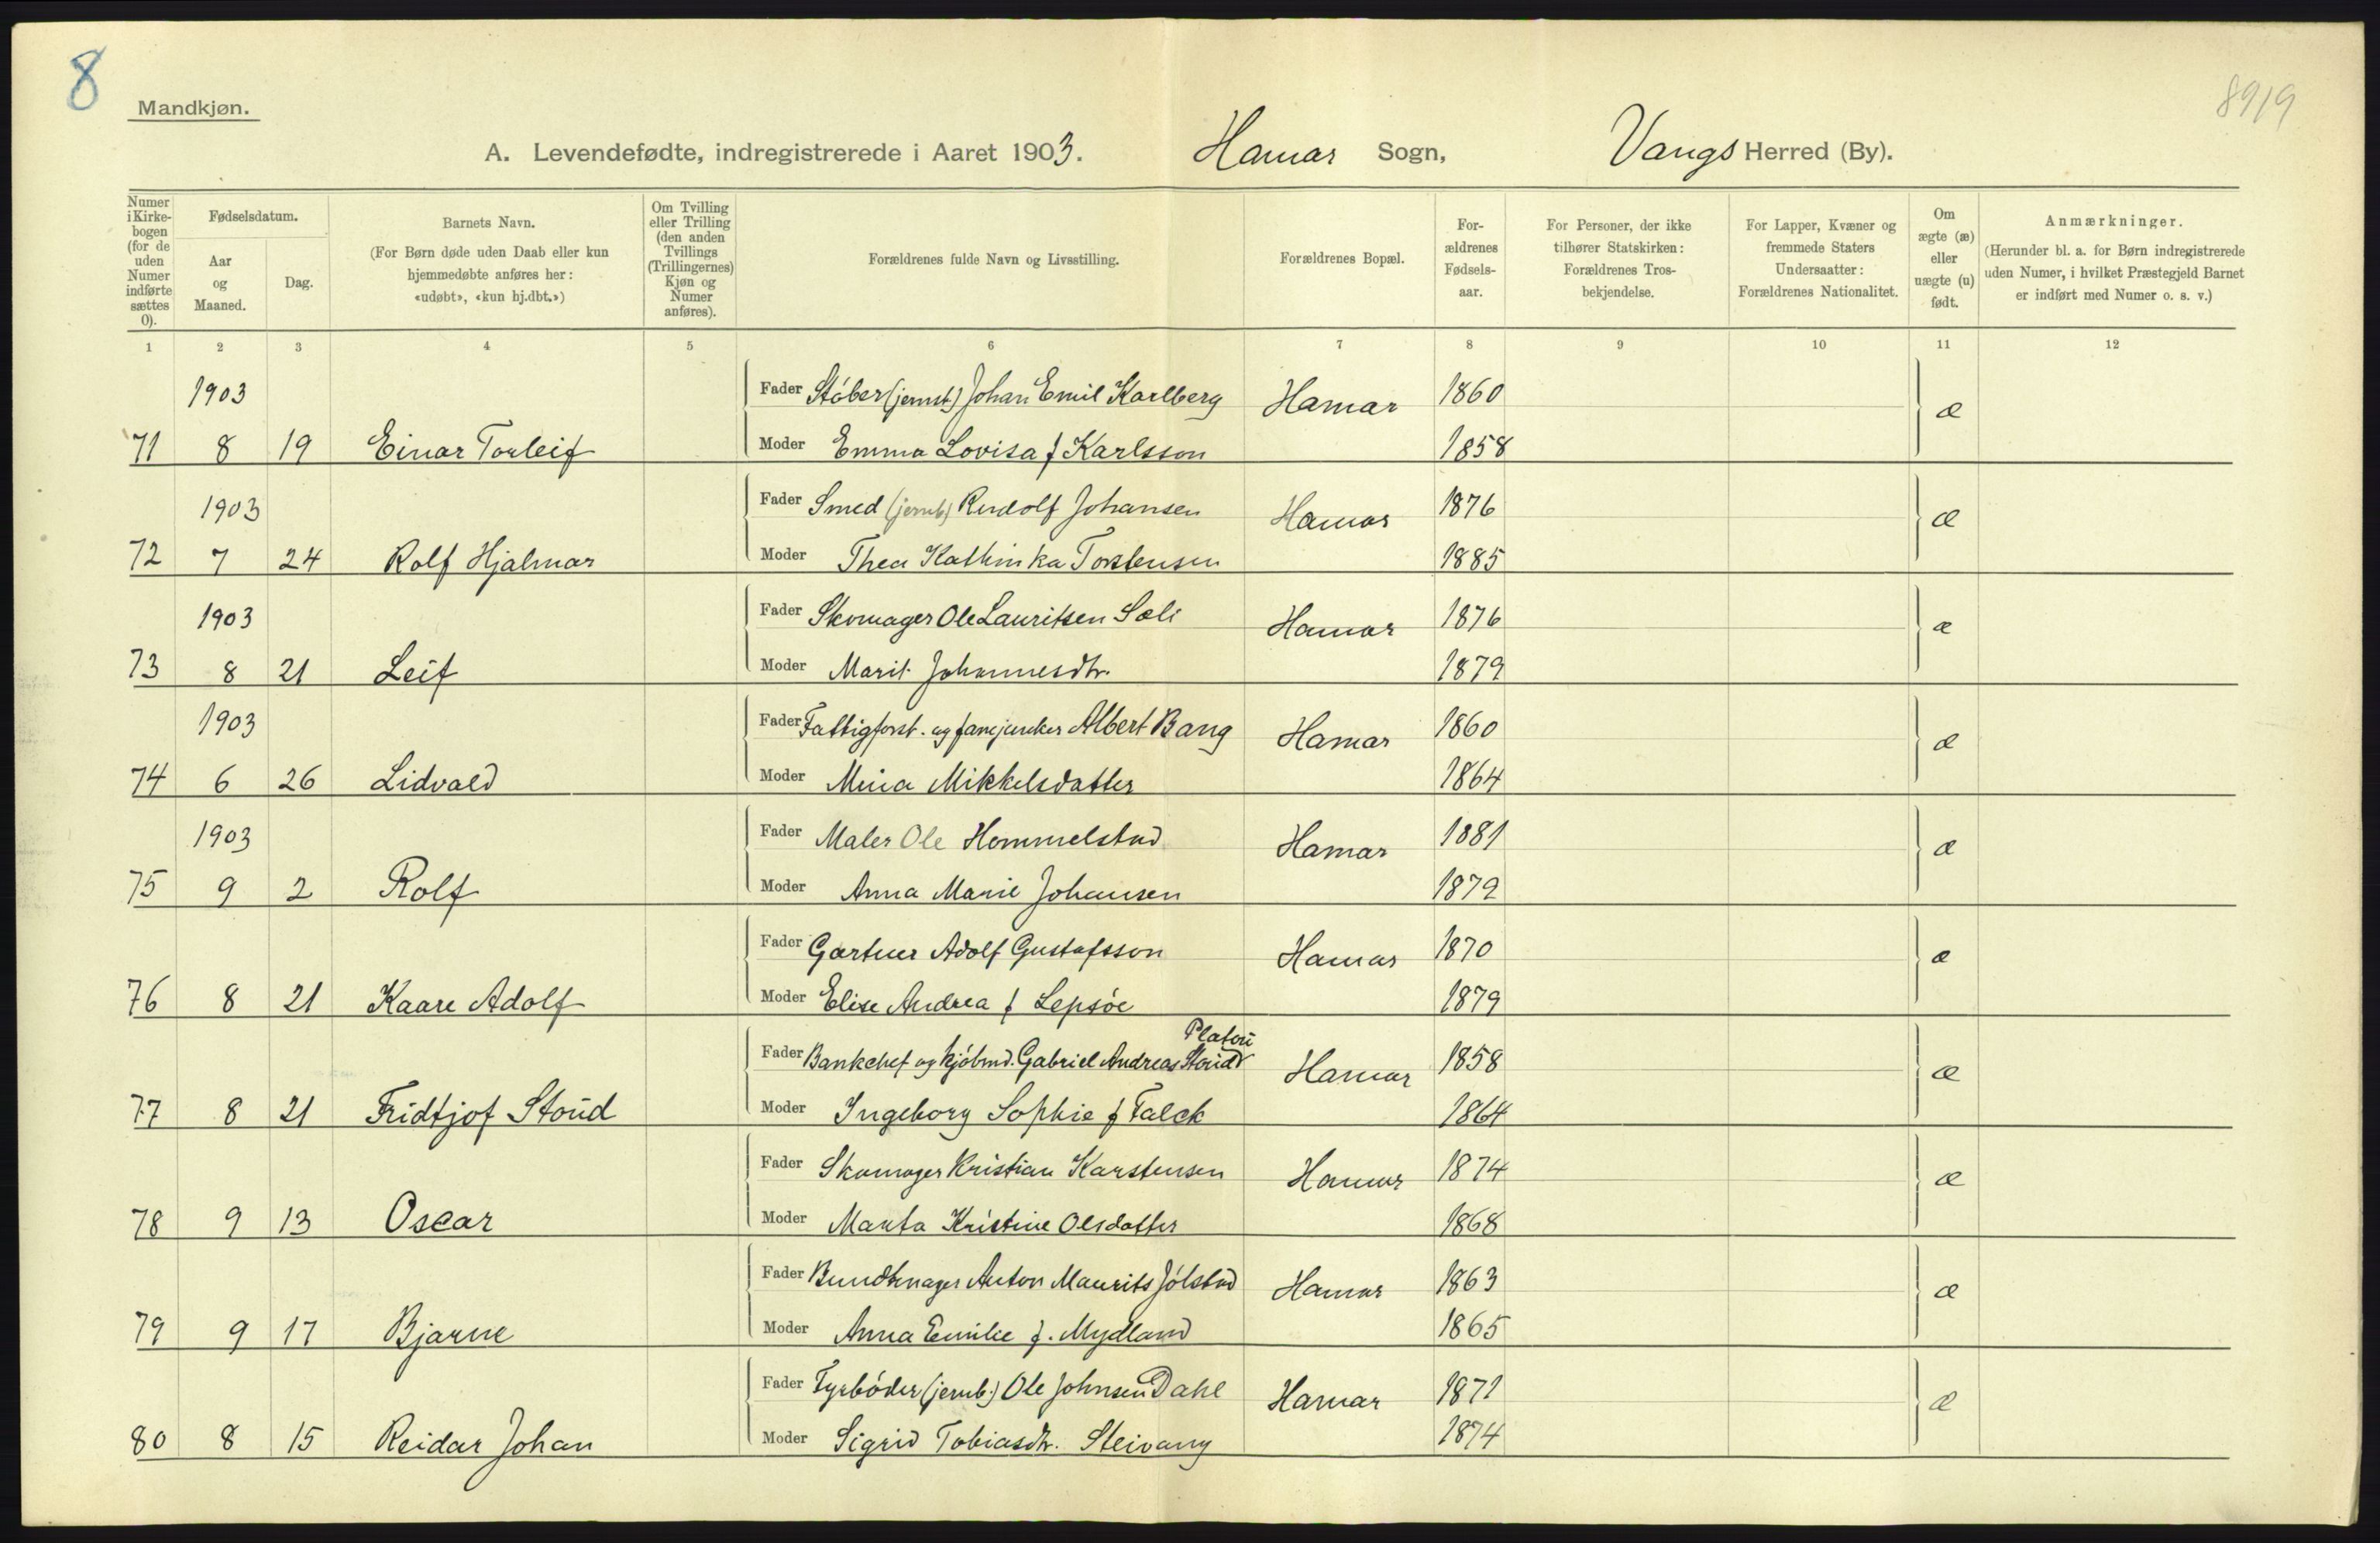 8
8919
Mandkjøn.
A. Levendefødte, indregistrerede i Aaret 1903. Hamar Sogn, Vangs Herred (By).
Numer i Kirkebogen (for de uden Numer indførte sættes 0).
Fødselsdatum.
Aar og Maaned.
Dag.
Barnets Navn.
(For Børn døde uden Daab eller kun
hjemmedøbte anføres her:
«udøbt», «kun hj.dbt.»)
Om Tvilling
eller Trilling
(den anden
Tvillings
(Trillingernes)
Kjøn og
Numer
anføres).
Forældrenes fulde Navn og Livsstilling.
Forældrenes Bopæl.
For-
ældrenes
Fødsels-
aar.
For Personer, der ikke
tilhører Statskirken:
Forældrenes Tros-
bekjendelse.
For Lapper, Kvæner og
fremmede Staters
Undersaatter:
Forældrenes Nationalitet.
Om
ægte (æ)
eller
uægte (u)
født.
Anmærkninger.
(Herunder bl. a. for Børn indregistrerede
uden Numer, i hvilket Præstegjeld Barnet
er indført med Numer o. s. v.)
1 2 3 4 5 6 7 8 9 10 11 12
1903 Fader Støber (jernst.) Johan Emil Karlberg Hamar 1860 æ
71 8 19 Einar Torleif Moder Emma Lovisa f Karlsson 1858
1903 Fader Smed (jernb) Rudolf Johansen Hamar 1876 æ
72 7 24 Rolf Hjalmar Moder Thea Kathinka Torstensen 1885
1903 Fader Skomager Ole Lauritsen Sæli Hamar 1876 æ
73 8 21 Leif Moder Marit Johannesdtr. 1879
1903 Fader Fattigforst. og fanejunker Albert Bang Hamar 1860 æ
74 6 26 Lidvald Moder Mina Mikkelsdatter 1864
1903 Fader Maler Ole Hommelstad Hamar 1881 æ
75 9 2 Rolf Moder Anna Marie Johansen 1879
Fader Gartner Adolf Gustafsson Hamar 1870 æ
76 8 21 Kaare Adolf Moder Elise Andrea f Lepsøe 1879
Platou
Fader Bankchef og kjøbmd. Gabriel Andreas Stoud Hamar 1858 æ
77 8 21 Fridtjof Stoud Moder Ingeborg Sophie f Falck 1864
Fader Skomager Kristian Karstensen Hamar 1874 æ
78 9 13 Oscar Moder Marta Kristine Olsdatter 1868
Fader Bundtmager Anton Maurits Jølstad Hamar 1863 æ
79 9 17 Bjarne Moder Anna Emilie f. Mydland 1865
Fader Fyrbøder (jernb.) Ole Johnsen Dahl Hamar 1871 æ
80 8 15 Reidar Johan Moder Sigrid Tobiasdtr. Steivang 1874